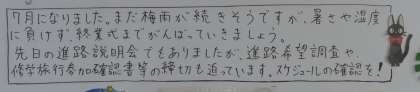 7月になりました。まだ梅雨が続きそうですが、暑さや湿度
に負けず、終業式までがんばっていきましょう。
先日の進路説明会でもありましたが、進路希望調査や、
修学旅行参加確認書等の締切も迫っています。スケジュールの確認を!